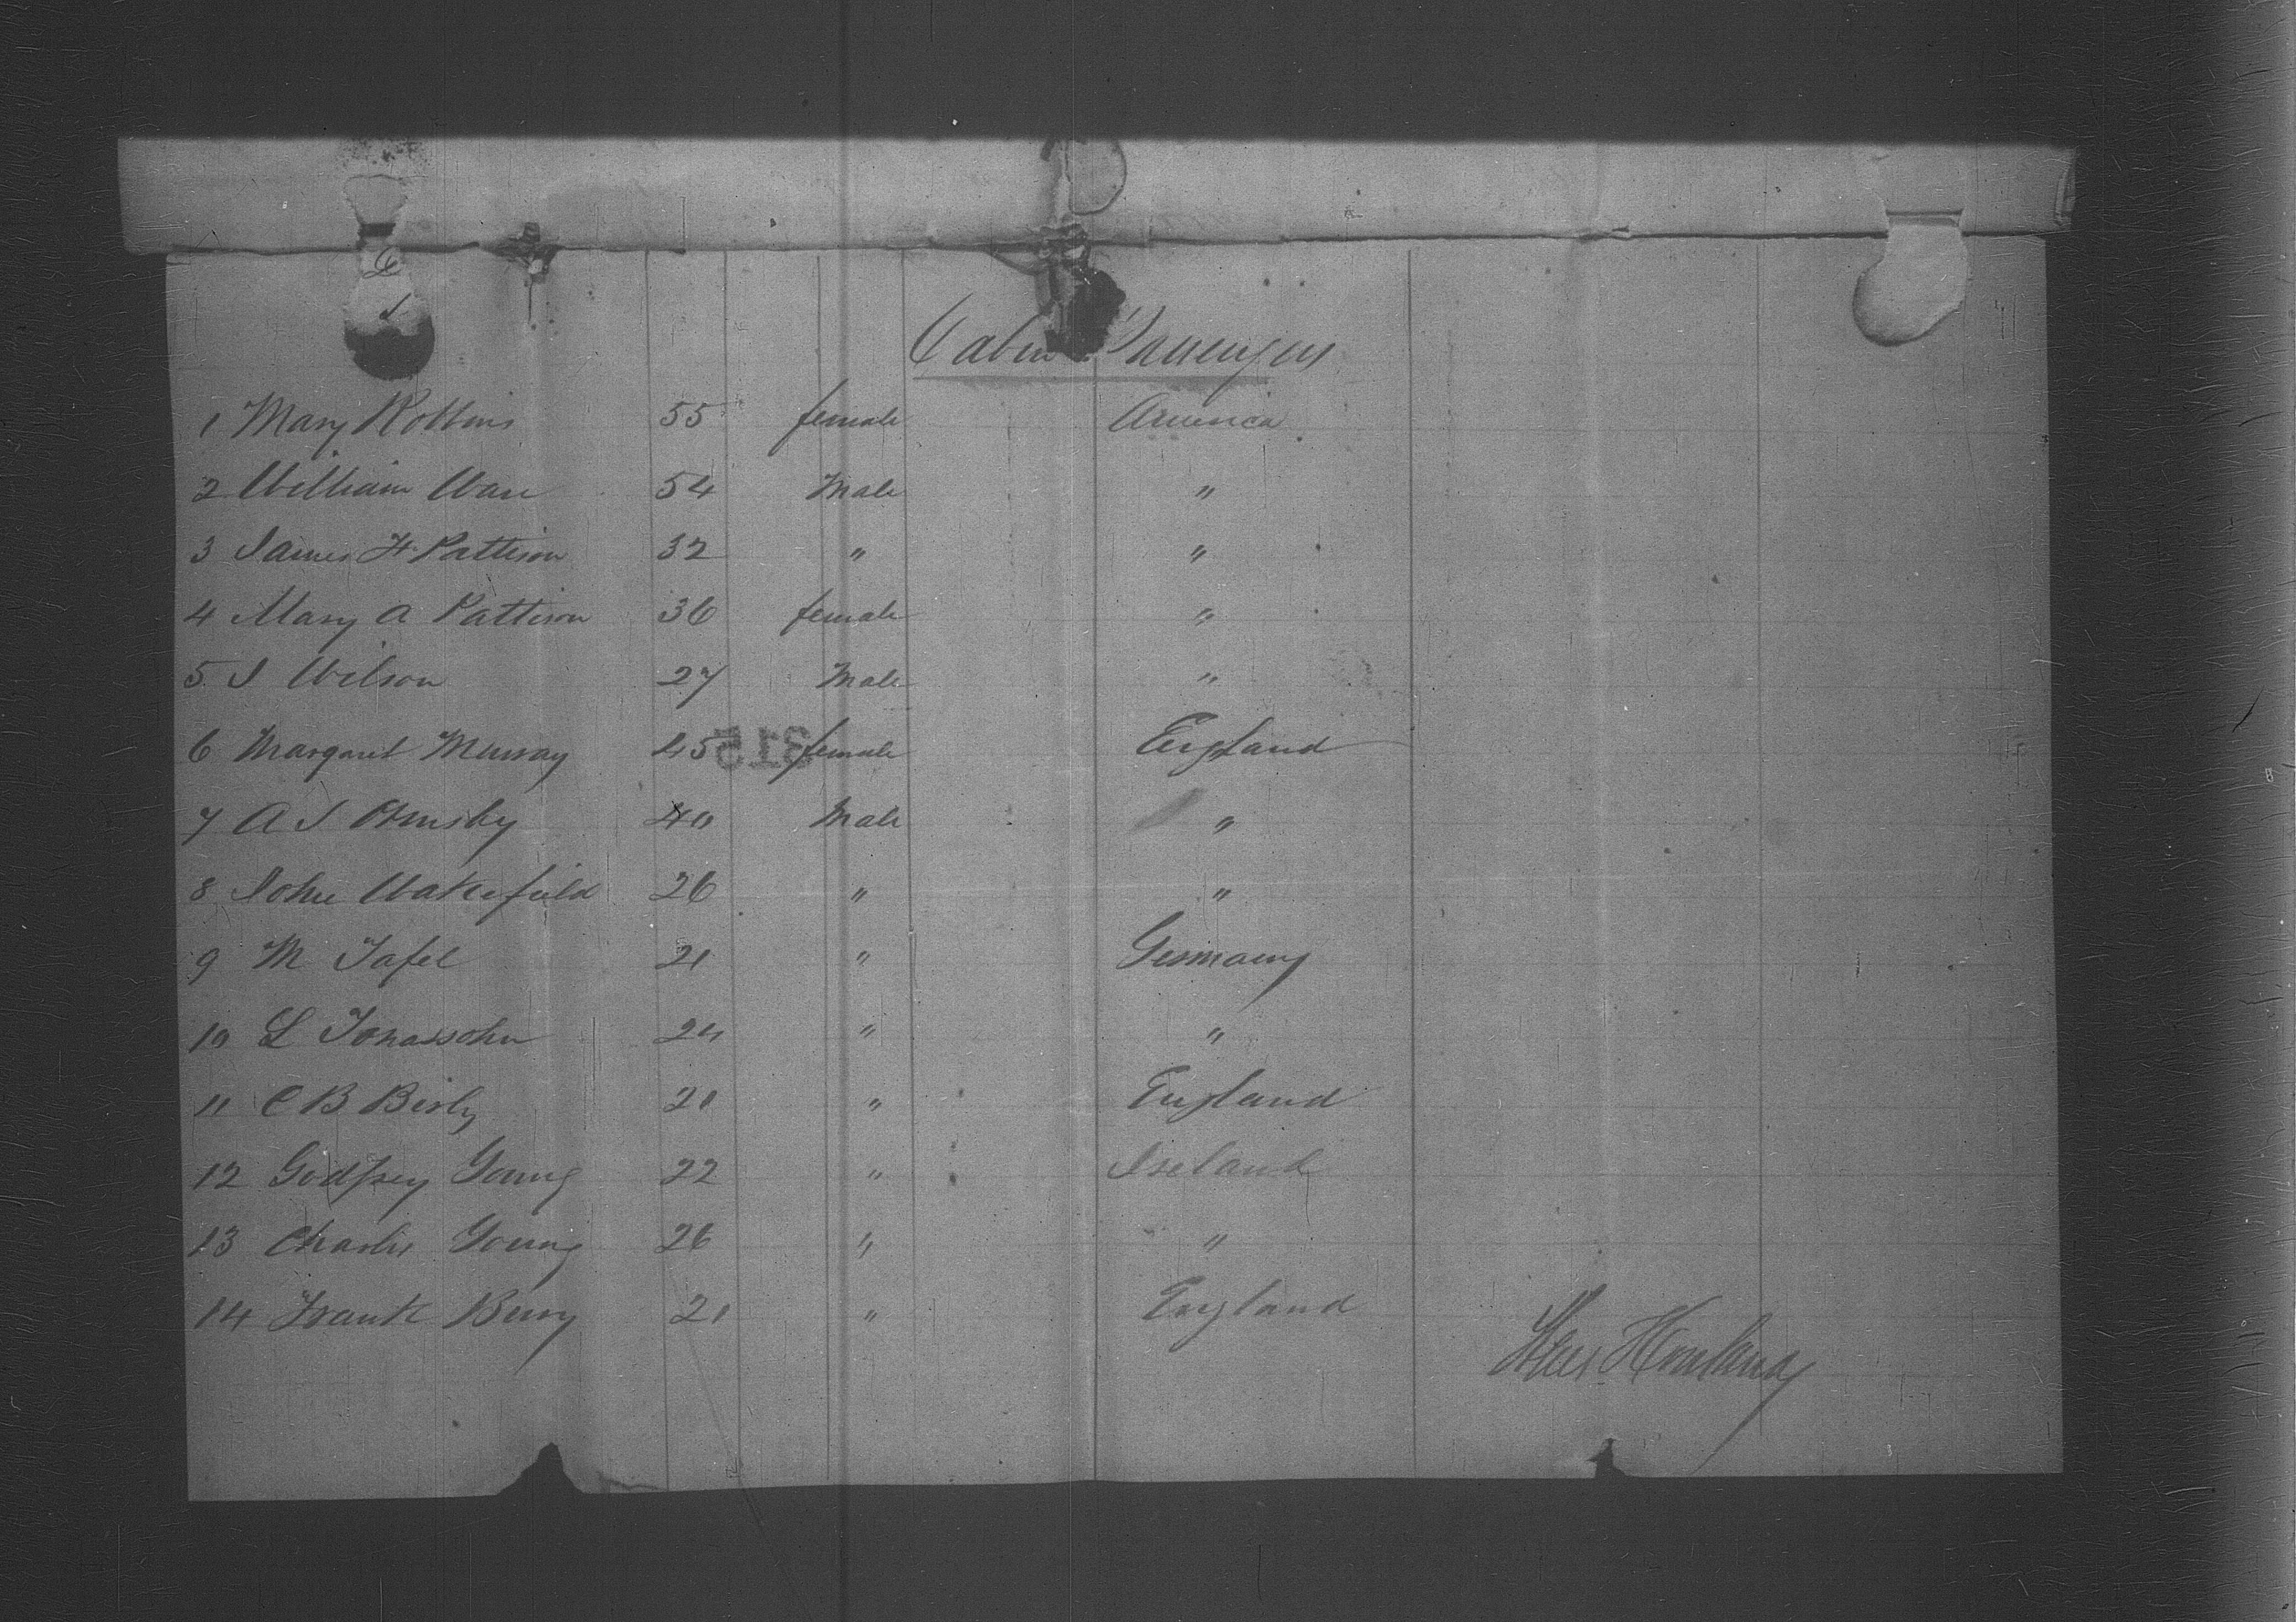 Cabin Passengers
1 Mary Robbins 55 female America
2 William Ware 54 Male "
3 James H. Pattison 32 " "
4 Mary A Pattison 36 female "
5 J Wilson 27 Male "
6 Margaret Murray 45 female England
7 A J Ormsby 40 Male "
8 John Wakefield 26 " "
9 M Tafel 21 " Germany
10 L Jonassohn 24 " "
11 C B Birly 21 " England
12 Godfrey Young 22 " Ireland
13 Charles Young 26 " "
14 Frank Berry 21 " England